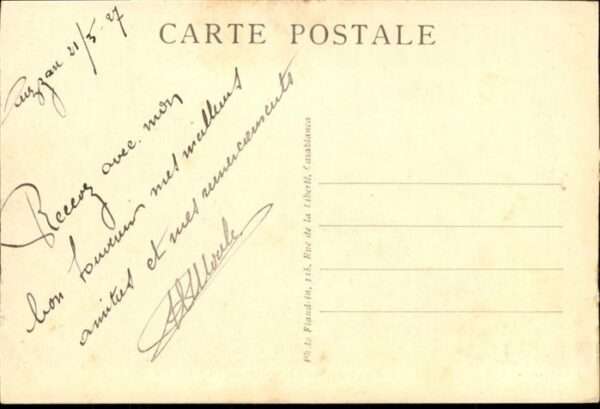 CARTE POSTALE
21/5.27
Recevez avec mon
bon souvenir mes meilleures
amitiés et mes remerciements
Photo Flandrin, 128, Rue de la Liberté, Casablanca